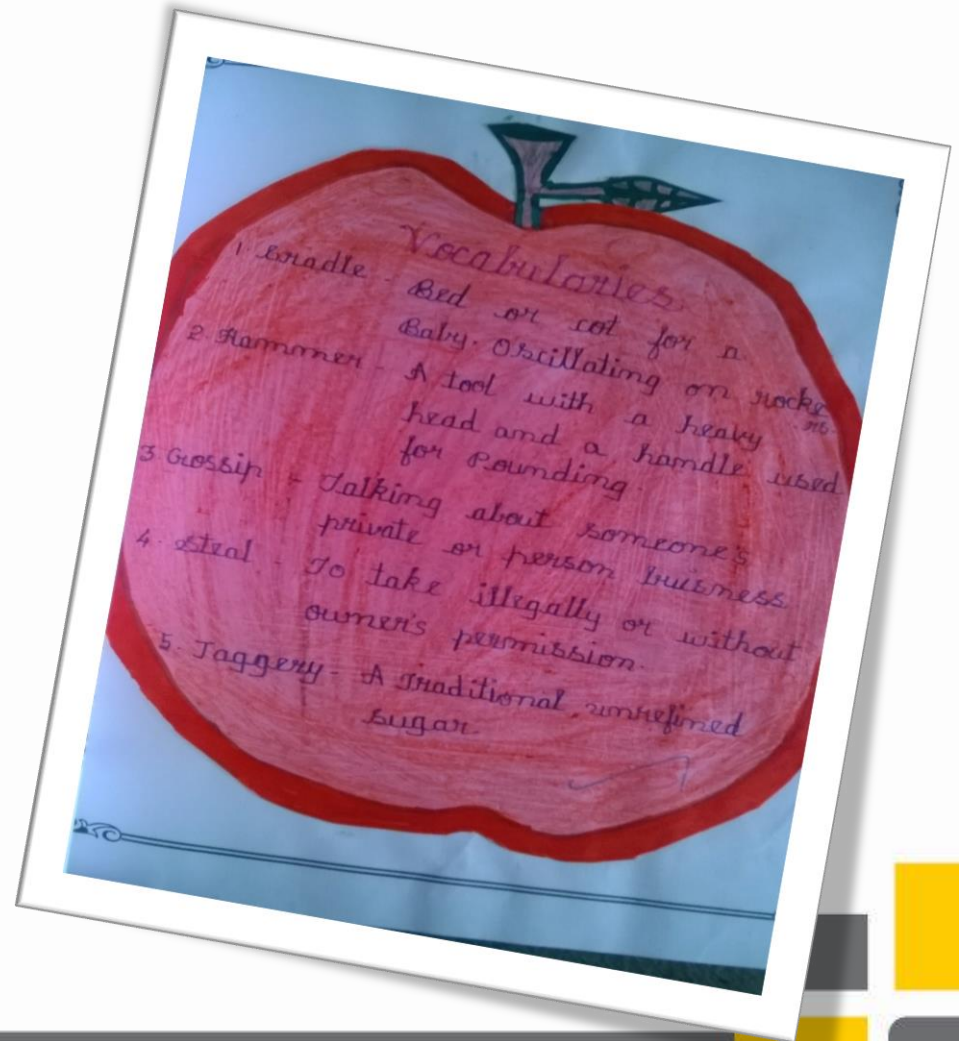 Vocabularies
1. Cradle - Bed or cot for a
Baby. Oscillating on rocke
rs.
2. Hammer - A tool with a heavy
head and a handle used
for Pounding.
3. Gossip - Talking about someone's
private or person buisness
4. Steal - To take illegally or without
owner's permission.
5. Jaggery - A Traditional unrefined
sugar.